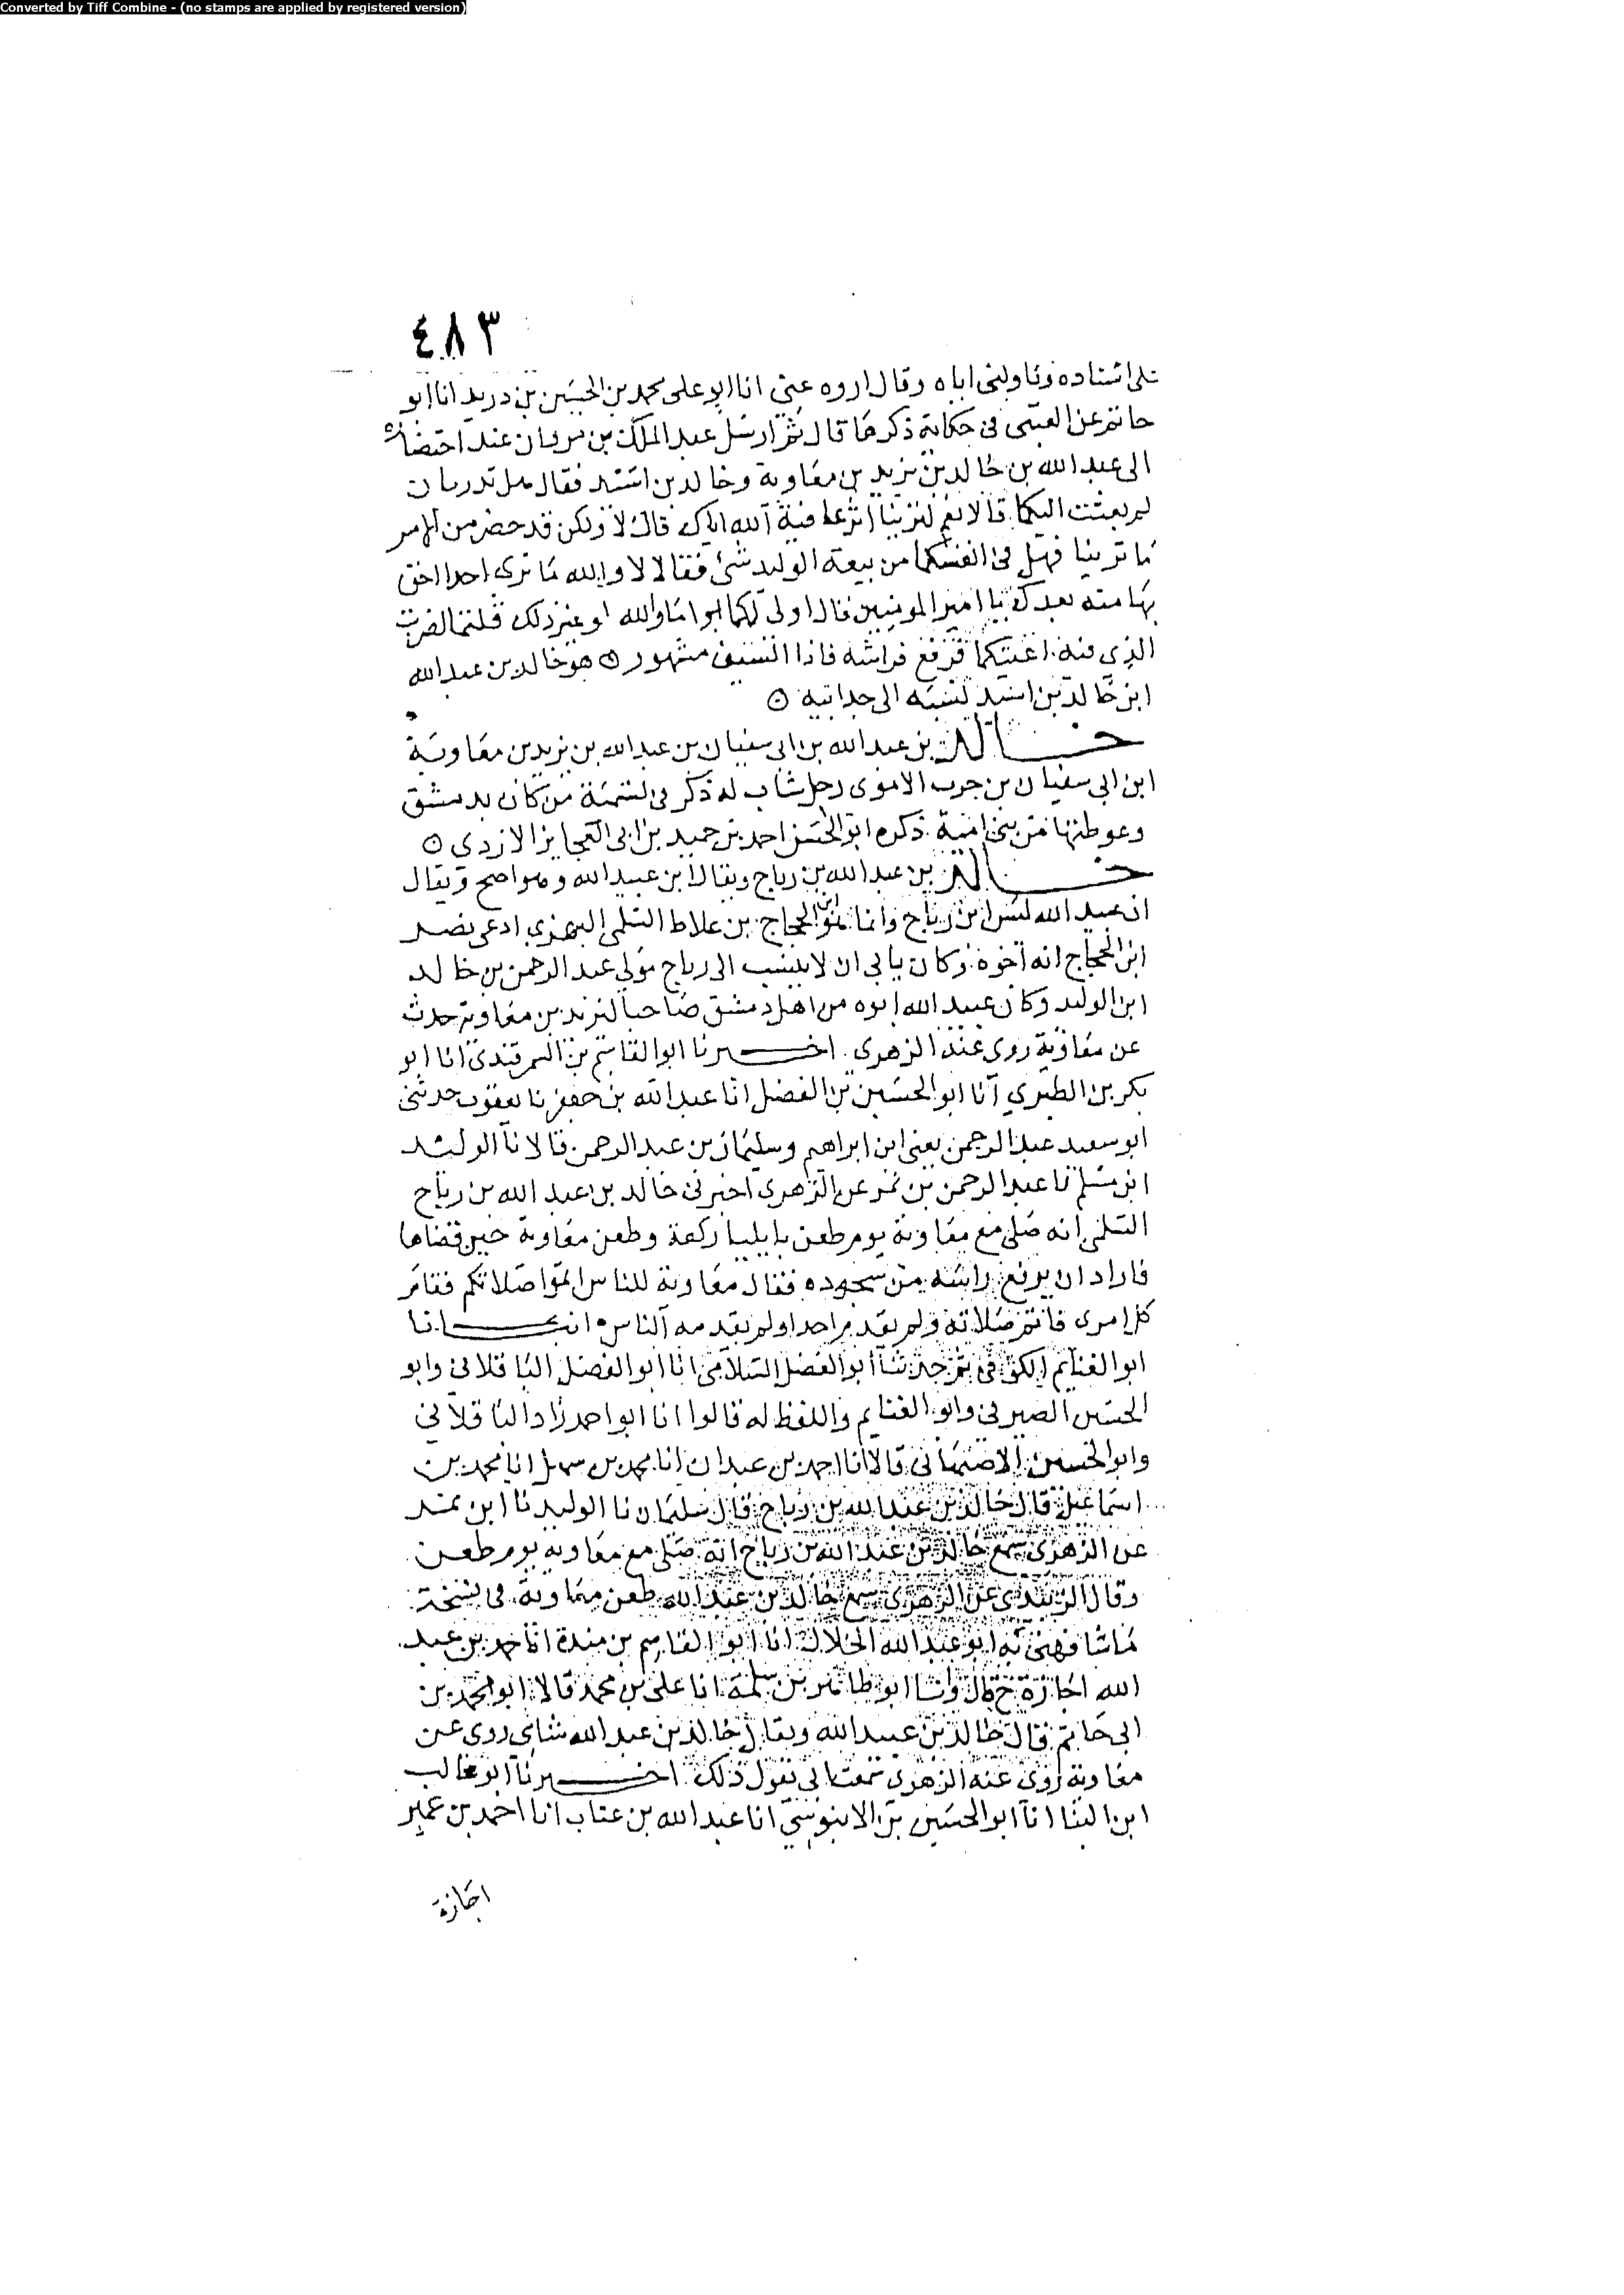 Converted by Tiff Combine - (no stamps are applied by registered version)
٤٨٣
على اسناده وناولني اياه وقال اروه عني انا ابو على محمد بن الحسين بن دريد انا ابو
حاتم عن العتبى في حكاية ذكرها قال ثم ارسل عبد الملك بن مروان عند احتضاره
الى عبد الله بن خالد بن يزيد بن معاوية وخالد بن اسيد فقال هل تدريان
لم بعثت اليكما قالا نعم لترينا اثر عافية الله اياك قال لا ولكن قد حضر من الامر
ما تريا فهل في انفسكما من بيعة الوليد شئ فقالا لا والله ما نرى احدا احق
بها منه بعدك يا امير المومنين قال اولى لكما اما والله لو غير ذلك قلتما لضربت
الذي فيه اعينكما فرفع فراشه فاذا السيف مشهور ه هو خالد بن عبد الله
ابن خالد بن اسيد نسبه الى جد ابيه ه
خالد بن عبد الله بن ابى سفيان بن عبد الله بن يزيد بن معاوية
ابن ابي سفيان بن حرب الاموى رجل شاب له ذكر في تسمية من كان بدمشق
وغوطتها من بنى امية ذكره ابو الحسن احمد بن حميد بن ابى العجايز الازدي ه
خالد بن عبد الله بن رباح ويقال ابن عبيد الله وهو اصح ويقال
ان عبيد الله ليس ابن رباح وانما هو ابن الحجاج بن علاط السلمى البهزي ادعى نصر
ابن الحجاج انه اخوه وكان يابى ان لا ينسب الى رباح مولى عبد الرحمن بن خالد
ابن الوليد وكان عبيد الله ابوه من اهل دمشق صاحبا ليزيد بن معاوية حدث
عن معاوية روى عنه الزهرى اخبرنا ابو القاسم بن السمرقندى انا ابو
بكر بن الطبري انا ابو الحسين بن الفضل انا عبد الله بن جعفر نا يعقوب حدثنى
ابو سعيد عبد الرحمن يعنى ابن ابراهيم وسليمان بن عبد الرحمن قالا نا الوليد
ابن مسلم نا عبد الرحمن بن نمر عن الزهرى اخبرنى خالد بن عبد الله بن رباح
السلمى انه صلى مع معاوية يوم طعن بايليا ركعة وطعن معاوية حين قضاها
فاراد ان يرفع راسه من سجوده فقال معاوية للناس اتموا صلاتكم فقام
كل امرى فاتم صلاته ولم يقدم احدا ولم يقدمه الناس ه انبانا
ابو الغنايم الكوفى ثم حدثنا ابو الفضل السلامى انا ابو الفضل الباقلانى وابو
الحسين الصيرفى وابو الغنايم واللفظ له قالوا انا ابو احمد زاد الباقلانى
وابو الحسين الاصبهانى قالا انا احمد بن عبدان انا محمد بن سهل انا محمد بن
اسماعيل قال خالد بن عبد الله بن رباح قال سليمان نا الوليد نا ابن نمر
عن الزهرى سمع خالد بن عبد الله بن رباح انه صلى مع معاوية يوم طعن
وقال الزبيدى عن الزهرى سمع خالد بن عبد الله طعن معاوية في نسخة
ما شافهنى به ابو عبد الله الخلال انا ابو القاسم بن مندة انا حمد بن عبد
الله اجازة ح قال وانا ابو طاهر بن سلمة انا على بن محمد قالا انا ابو محمد بن
ابى حاتم قال خالد بن عبيد الله ويقال خالد بن عبد الله شامي روى عن
معاوية روى عنه الزهرى سمعت ابى يقول ذلك اخبرنا ابو غالب
ابن البنا انا ابو الحسين بن الابنوسي انا عبد الله بن عتاب انا احمد بن عمير
اجازة